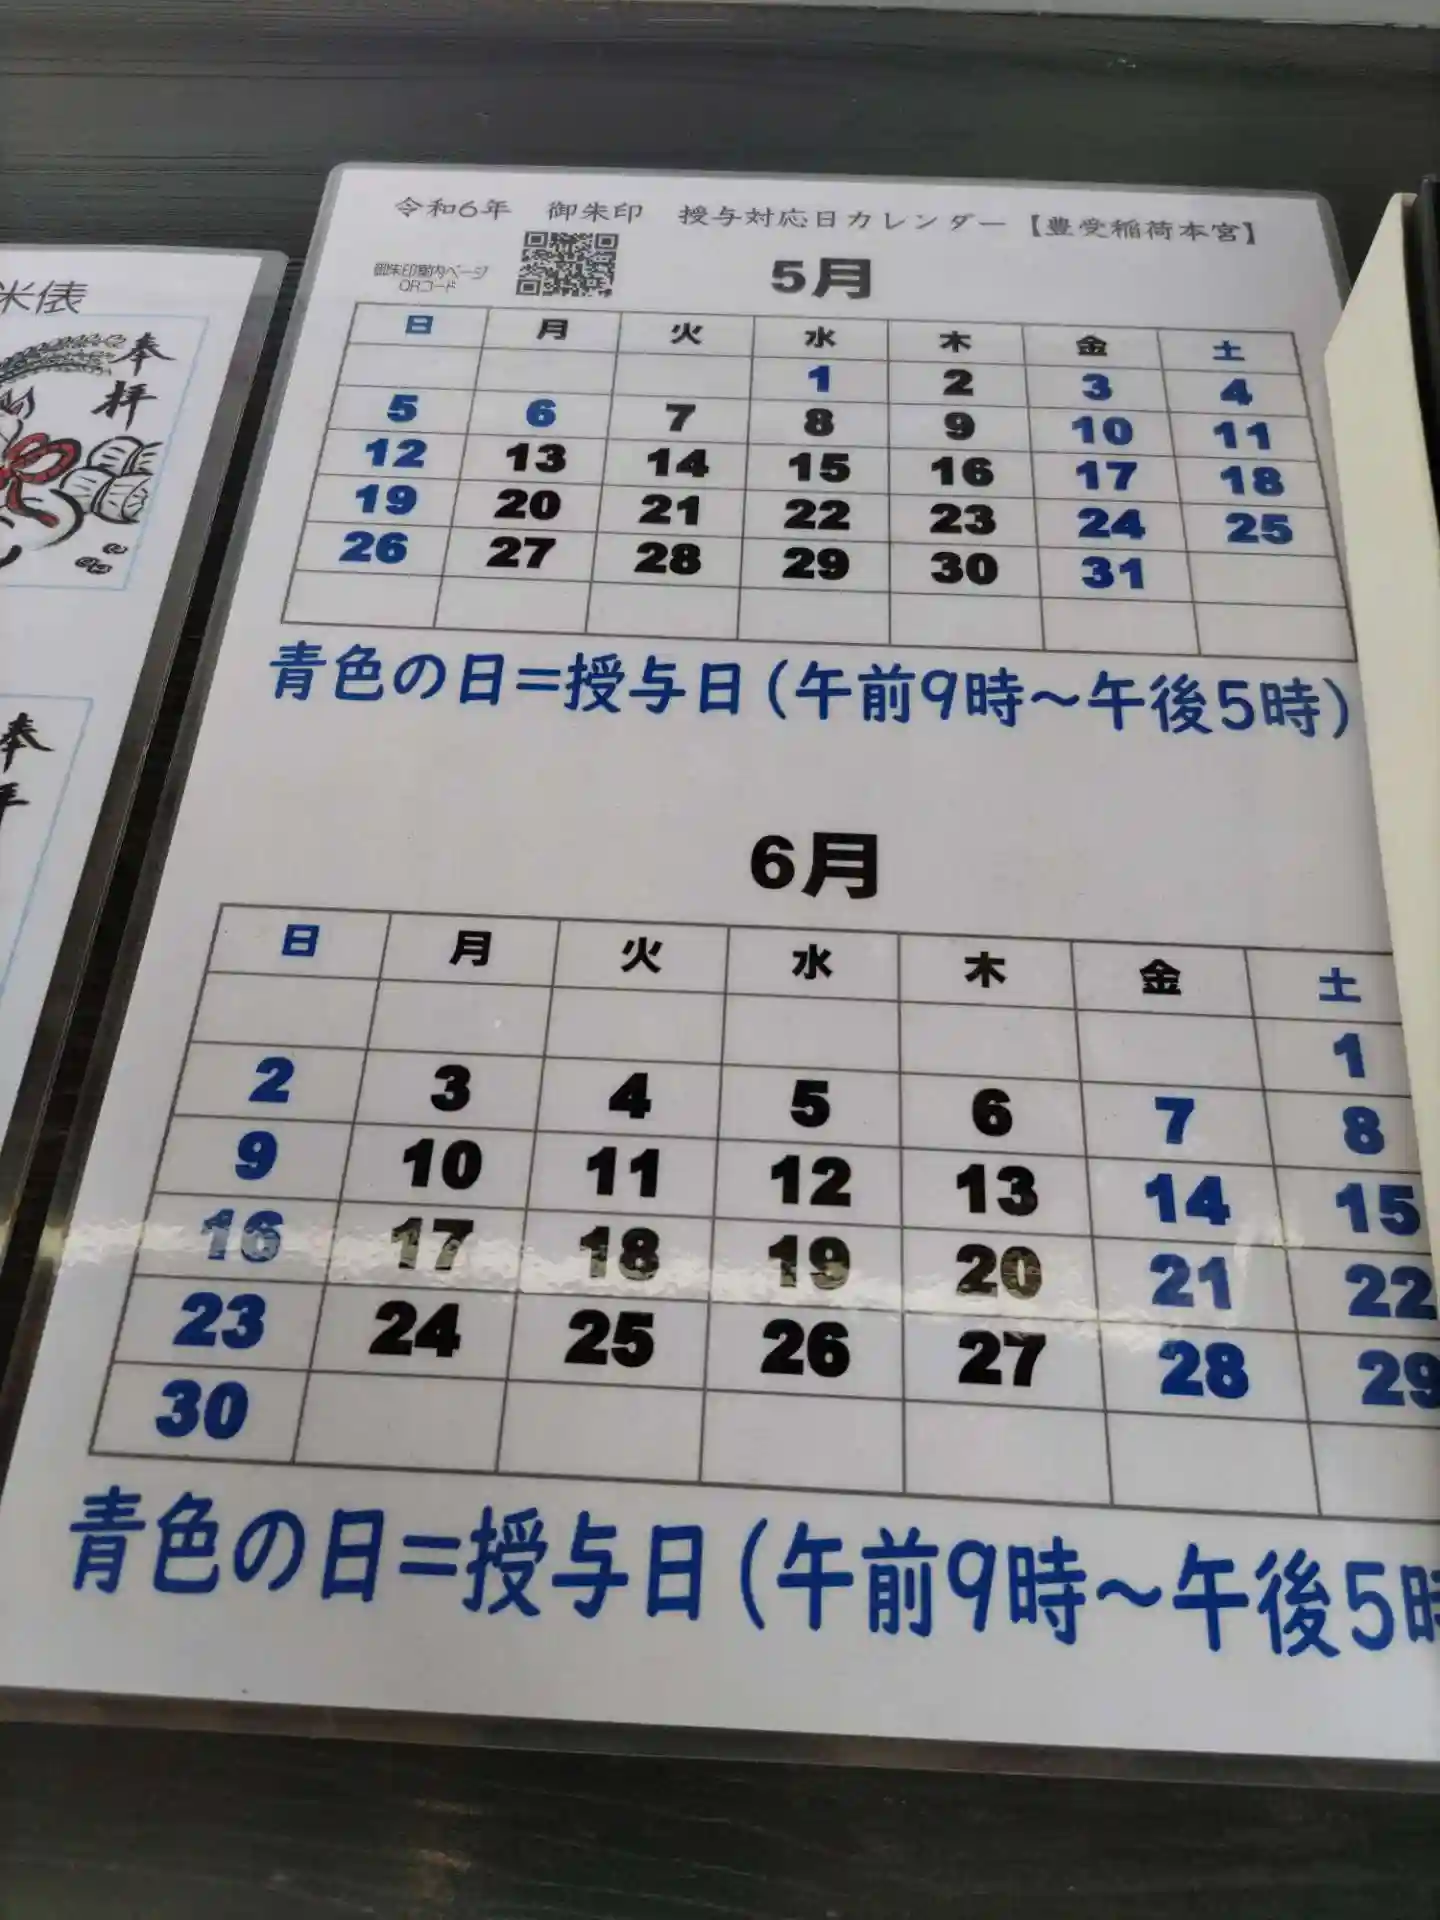 令和6年 御朱印 授与対応日カレンダー【豊受稲荷本宮】
御朱印案内ページ
QRコード
5月
日 月 火 水 木 金 土
1 2 3 4
5 6 7 8 9 10 11
12 13 14 15 16 17 18
19 20 21 22 23 24 25
26 27 28 29 30 31
青色の日=授与日(午前9時～午後5時)
6月
日 月 火 水 木 金 土
1
2 3 4 5 6 7 8
9 10 11 12 13 14 15
16 17 18 19 20 21 22
23 24 25 26 27 28 29
30
青色の日=授与日(午前9時～午後5時
米俵
奉拝
奉